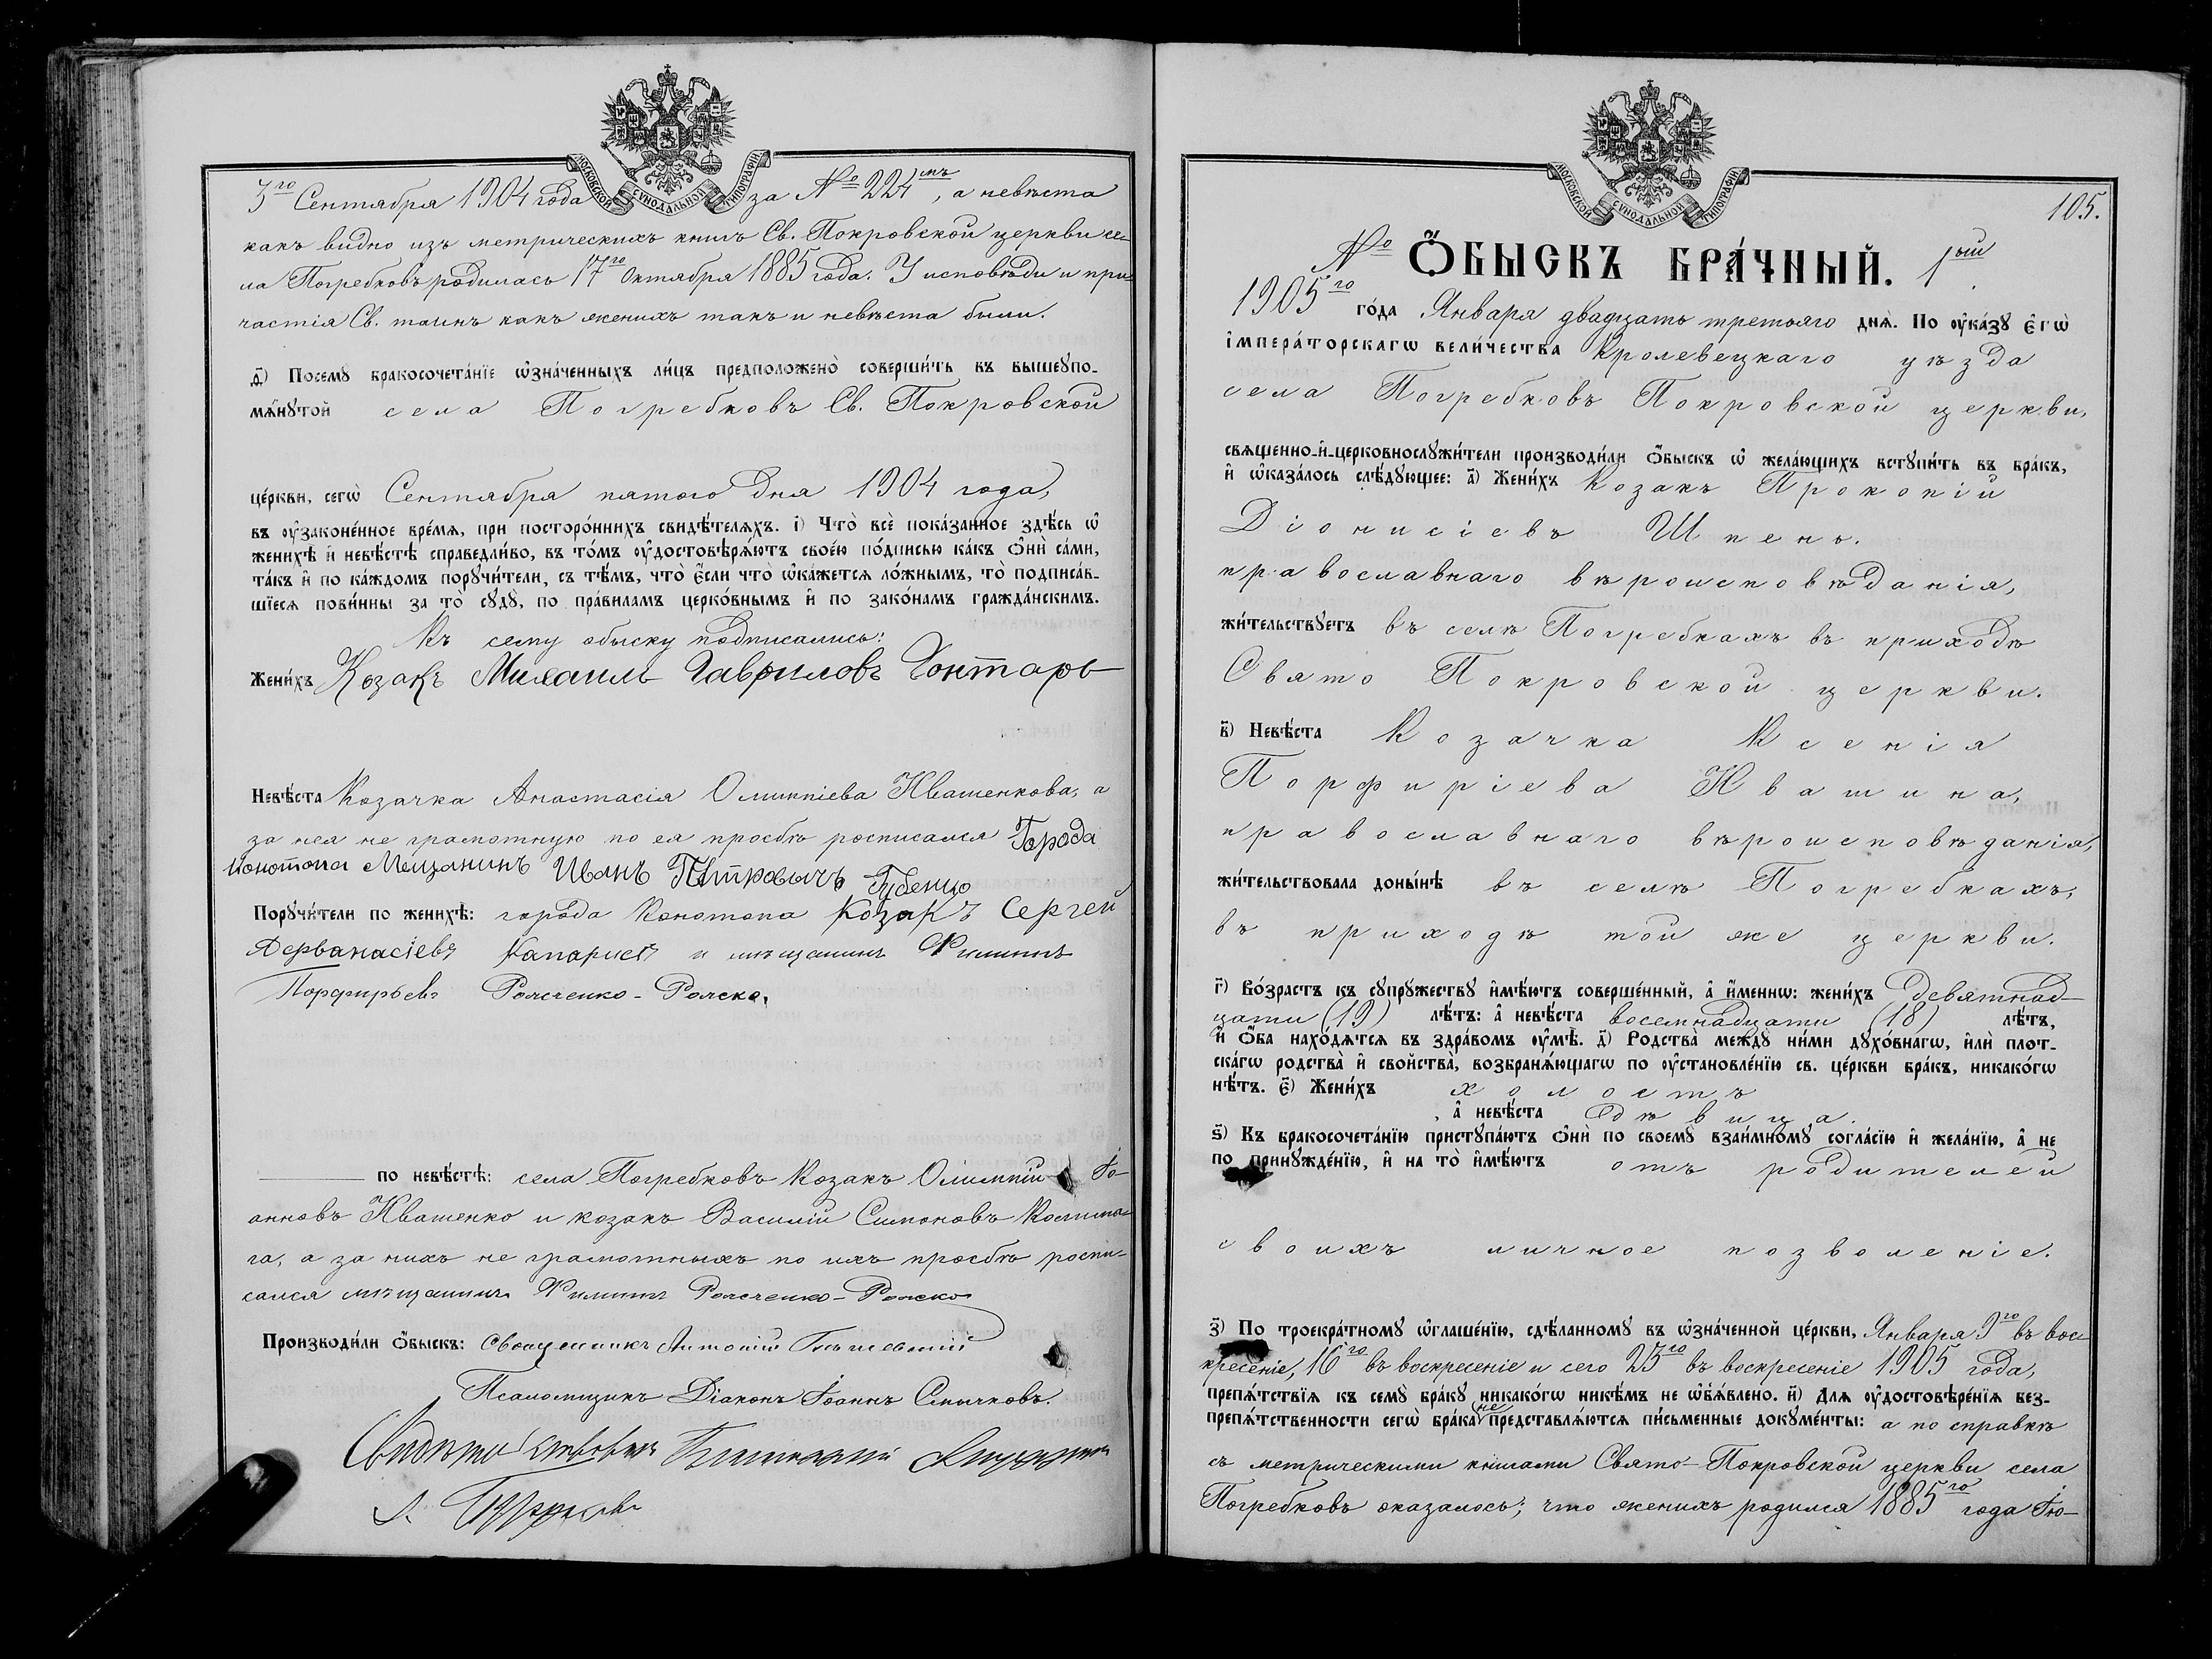 МОСКОВСКОЙ СѴНОДАЛЬНОЙ ТИПОГРАФІИ
3го Сентября 1904 года за № 224мъ, а невѣста
какъ видно изъ метрическихъ книгъ Св. Покровской церкви се-
ла Погребковъ родилась 17го Октября 1885 года. У исповѣди и при-
частія Св. таинъ какъ женихъ такъ и невѣста были.
ѳ҃) Посемꙋ бракосочета́нїе ѡ҆зна́ченныхъ ли́цъ предположено̀ соверши́ть въ вышеꙋпо-
мѧ́нꙋтой села Погребковъ Св. Покровской
це́ркви, сегѡ̀ Сентября пятого дня 1904 года,
въ ᲂу҆законе́нное вре́мѧ, при посторо́ннихъ свидѣ́телѧхъ. і҃) Что̀ всѐ пока́занное здѣ́сь ѡ҆
женихѣ̀ и҆ невѣ́стѣ справедли́во, въ то́мъ ᲂу҆достовѣрѧ́ютъ свое́ю по́дписью ка́къ ѻ҆нѝ са́ми,
та́къ и҆ по ка́ждомъ порꙋчи́тели, съ тѣ́мъ, что̀ є҆́сли что̀ ѡ҆ка́жетсѧ ло́жнымъ, то̀ подписа́в-
шїесѧ пови́нны за то̀ сꙋдꙋ̀, по пра́виламъ церко́внымъ и҆ по зако́намъ гражда́нскимъ.
Къ сему обыску подписались:
Жени́хъ Козакъ Михаилъ Гавриловъ Гонтарь
Невѣ́ста Козачка Анастасія Олимпіева Ивашенкова, а
за нея не грамотную по ея просьбѣ росписался Города
Конотопа Мещанинъ Иванъ Петровичъ Губенко
Порꙋчи́тели по женихѣ̀: города Конотопа Козакъ Сергей
Порфирьевъ
по невѣ́стѣ: села Погребковъ Козакъ Олимпій Іо-
анновъ Ивашенко и козакъ Василій Симоновъ
га, а за нихъ не грамотныхъ по ихъ просьбѣ роспи-
сался мѣщанинъ Филиппъ
Производи́ли ѻ҆́быскъ: Священникъ Антоній
Псаломщикъ Діаконъ Іоаннъ Смычковъ.
МОСКОВСКОЙ СѴНОДАЛЬНОЙ ТИПОГРАФІИ
105.
№ Ѻ҆́БЫСКЪ БРА́ЧНЫЙ. 1ый
1905го го́да Января двадцать третьяго днѧ̀. По ᲂу҆ка́зꙋ є҆гѡ̀
і҆мпера́торскагѡ вели́чества Кролевецкаго уѣзда
села Погребковъ Покровской церкви,
свѧщенно-и҆-церковнослꙋжи́тели производи́ли ѻ҆́быскъ ѡ҆ жела́ющихъ встꙋпи́ть въ бра́къ,
и҆ ѡ҆каза́лось слѣ́дꙋющее: а҃) Жени́хъ Козакъ Прокопій
Діонисіевъ Шпень.
православнаго вѣроисповѣданія,
жи́тельствꙋетъ въ селѣ Погребкахъ въ приходѣ
Свято Покровской церкви.
в҃) Невѣ́ста Козачка Ксенія
Порфиріева Ивашина,
православнаго вѣроисповѣданія,
жи́тельствовала доны́нѣ въ селѣ Погребкахъ,
въ приходѣ той же церкви.
г҃) Во́зрастъ къ сꙋпрꙋ́жествꙋ и҆мѣ́ютъ соверше́нный, а҆ и҆́меннѡ: жени́хъ девятнад-
цати (19) лѣ́тъ: а҆ невѣ́ста восемнадцати (18) лѣ́тъ,
и҆ ѻ҆́ба нахо́дѧтсѧ въ здра́вомъ ᲂу҆мѣ̀. д҃) Родства̀ междꙋ̀ ни́ми дꙋхо́внагѡ, и҆лѝ плот-
ска́гѡ родства̀ и҆ свойства̀, возбранѧ́ющагѡ по ᲂу҆становле́нїю св. це́ркви бра́къ, никако́гѡ
нѣ́тъ. є҃) Жени́хъ холостъ
, а҆ невѣ́ста дѣвица.
ѕ҃) Къ бракосочета́нїю пристꙋпа́ютъ ѻ҆нѝ по своемꙋ̀ взаи́мномꙋ согла́сїю и҆ жела́нїю, а҆ не
по принꙋжде́нїю, и҆ на то̀ и҆мѣ́ютъ отъ родителей
своихъ личное позволеніе.
з҃) По троекра́тномꙋ ѡ҆глаше́нїю, сдѣ́ланномꙋ въ ѡ҆зна́ченной це́ркви, Января 9го въ вос-
кресеніе, 16го въ воскресеніе и сего 23го въ воскресеніе 1905 года,
препѧ́тствїѧ къ семꙋ̀ бра́кꙋ никако́гѡ нике́мъ не ѡ҆б̾ѧ́влено. и҃) Длѧ ᲂу҆достовѣре́нїѧ без-
препѧ́тственности сегѡ̀ бра́ка не представлѧ́ютсѧ пи́сьменные докꙋме́нты: а по справкѣ
съ метрическими книгами Свято-Покровской церкви села
Погребковъ оказалось, что женихъ родился 1885го года Ію-